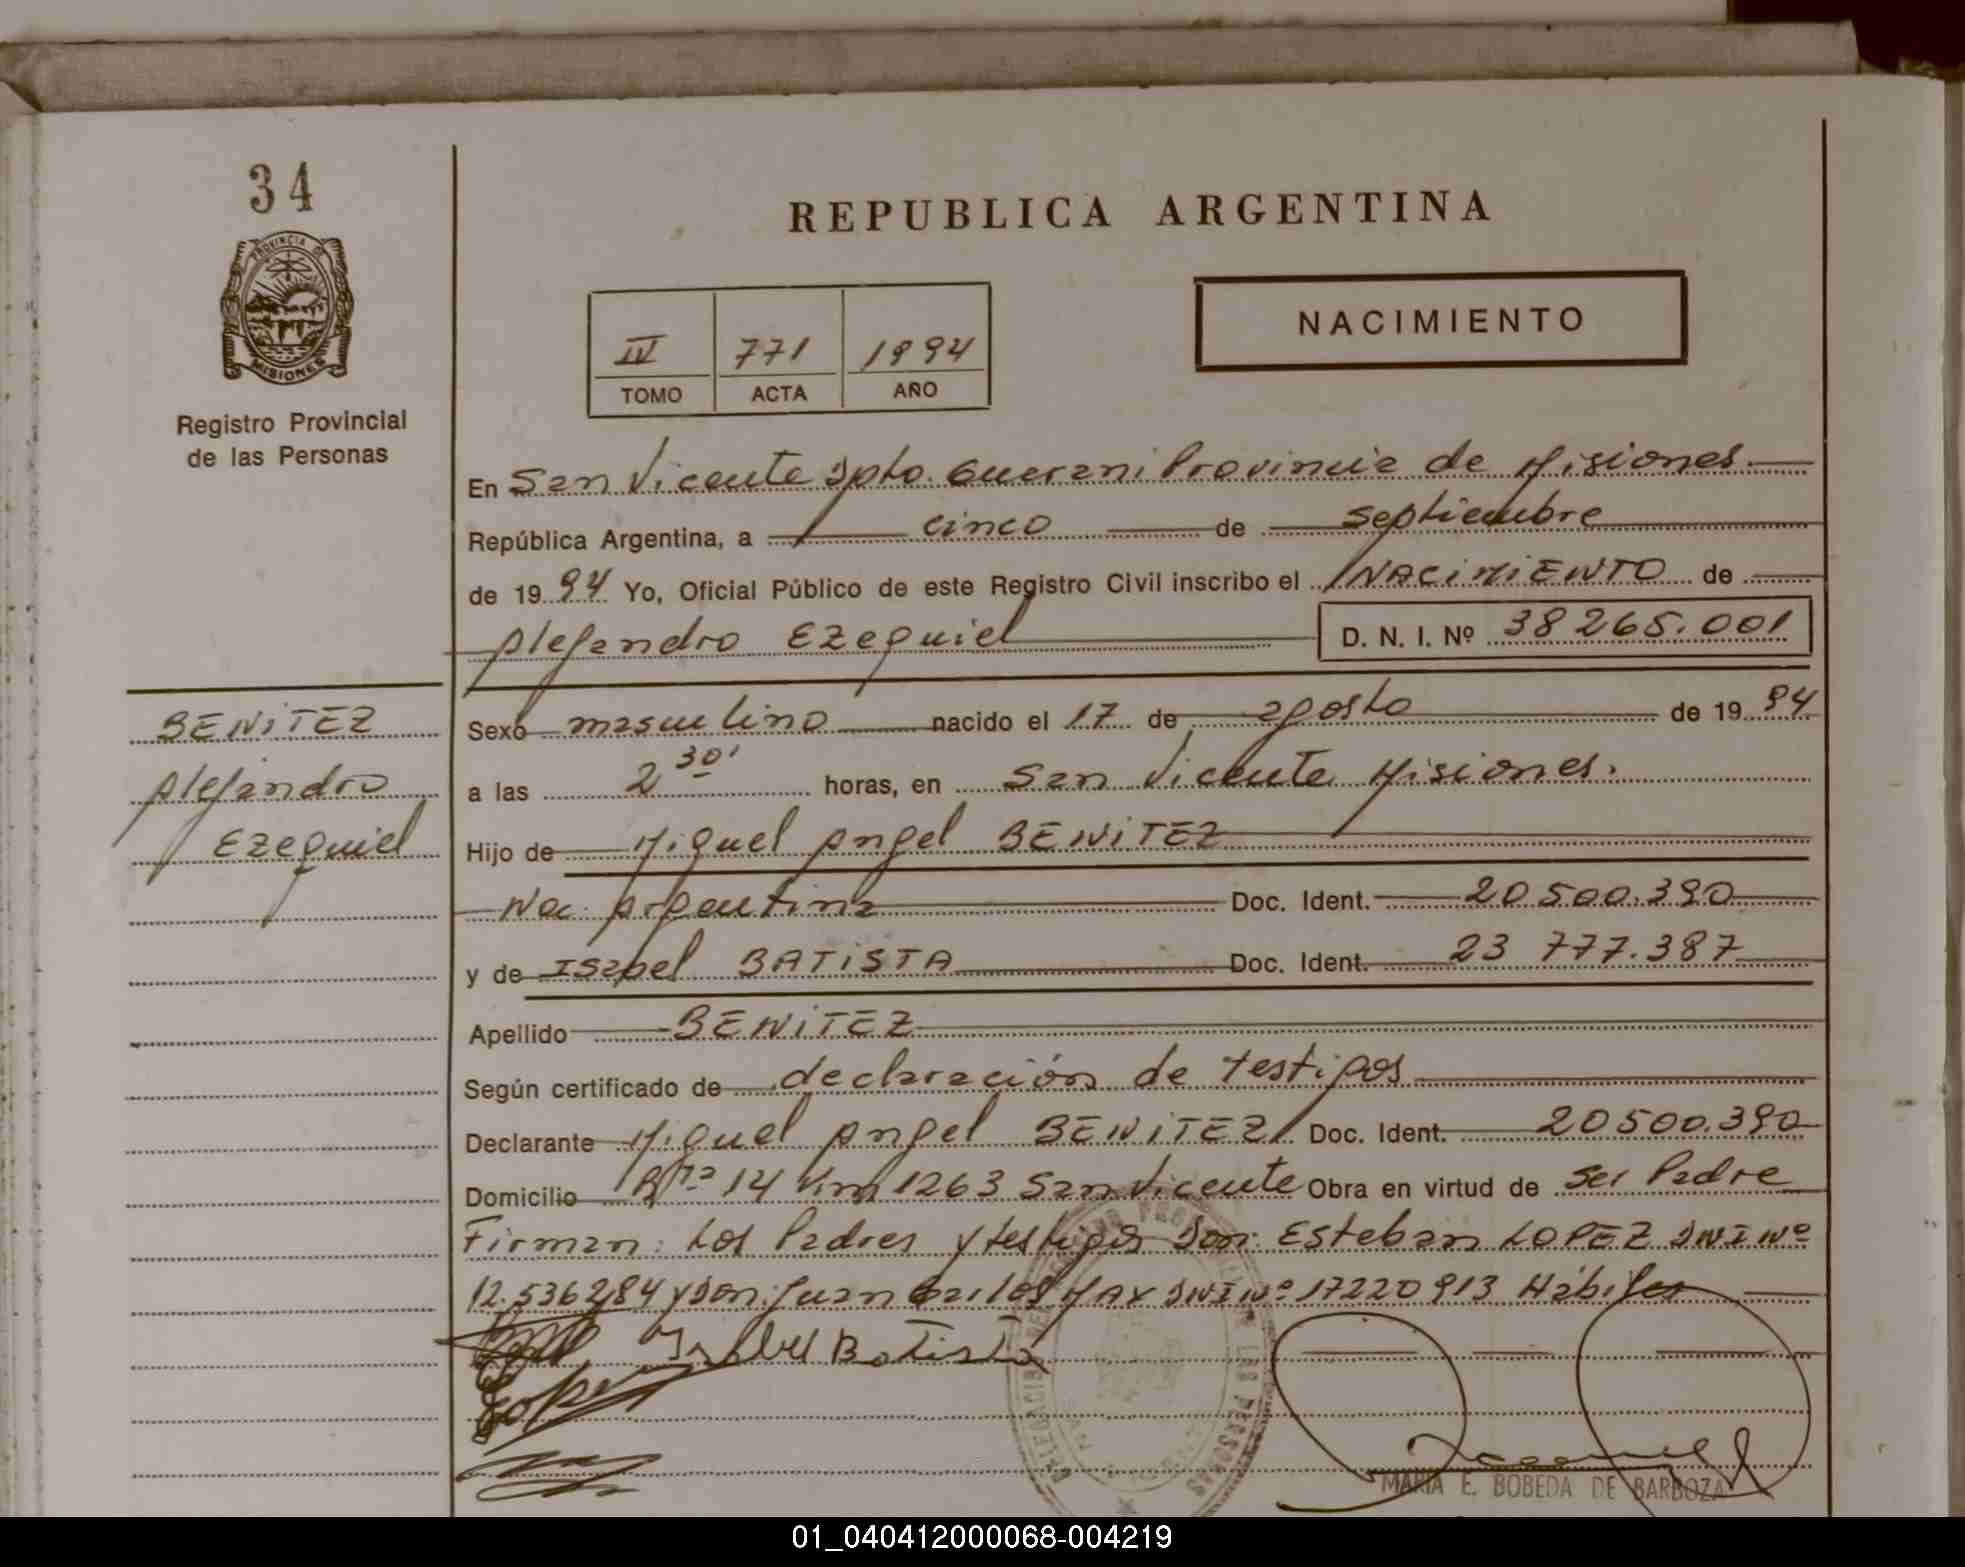 34
PROVINCIA DE
MISIONES
Registro Provincial
de las Personas
REPUBLICA ARGENTINA
NACIMIENTO
IV 771 1994
TOMO ACTA AÑO
En San Vicente Dpto. Guarani Provincia de Misiones
República Argentina, a cinco de septiembre
de 1994 Yo, Oficial Público de este Registro Civil inscribo el NACIMIENTO de
Alejandro Ezequiel D. N. I. Nº 38265.001
BENITEZ
Alejandro
Ezequiel
Sexo masculino nacido el 17 de agosto de 1994
a las 2 30' horas, en San Vicente Misiones.
Hijo de Miguel Angel BENITEZ
Nac. Argentina Doc. Ident. 20500.390
y de Isabel BATISTA Doc. Ident. 23 777.387
Apellido BENITEZ
Según certificado de declaración de testigos
Declarante Miguel Angel BENITEZ Doc. Ident. 20500.390
Domicilio Rta 14 Km 1263 San Vicente Obra en virtud de ser Padre
Firman: Los Padres y testigos Don: Esteban LOPEZ DNI Nº
12.536284 y Don: Juan DNI Nº 17220913 Hábiles
Isabel Batista
MARIA E. BOBEDA DE BARBOZA
01_040412000068-004219